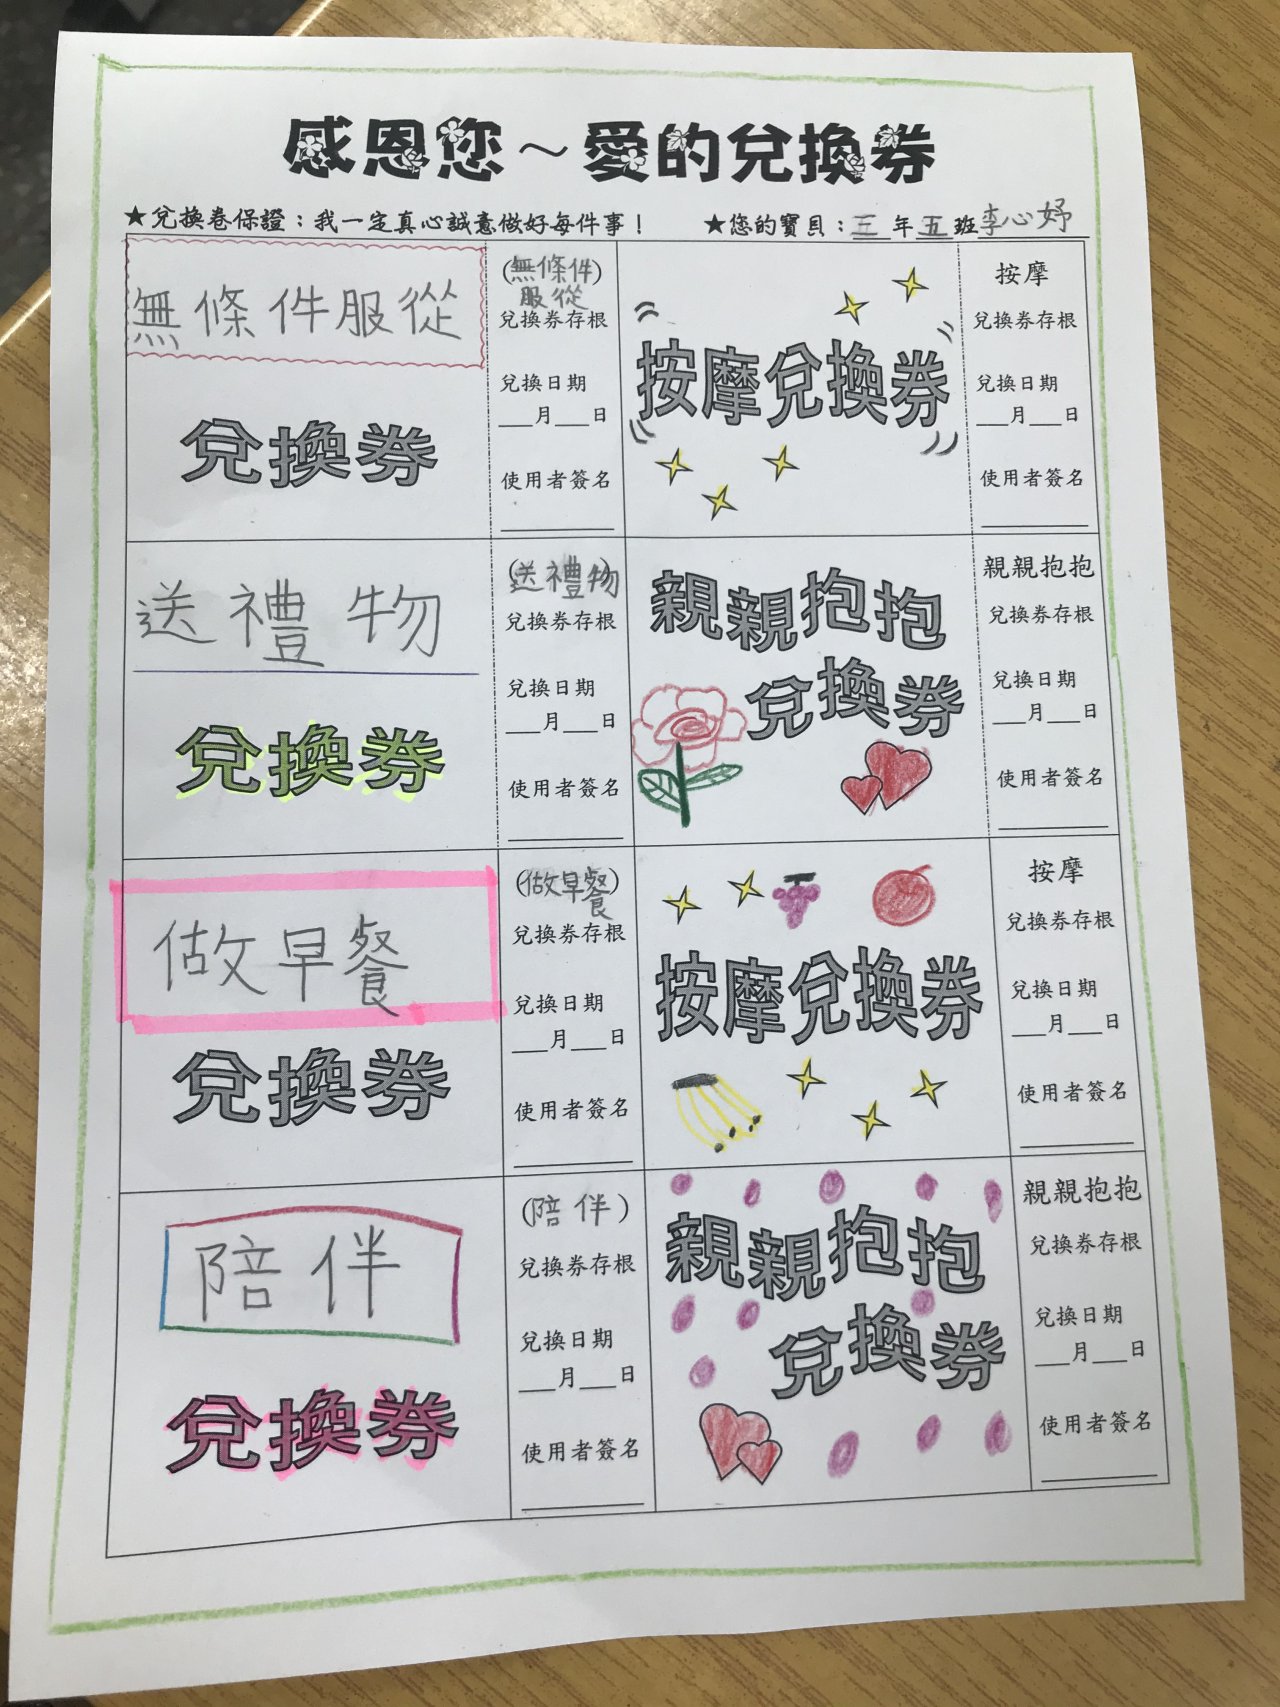 感恩您～愛的兌換券
★兌換卷保證：我一定真心誠意做好每件事！
★您的寶貝：三年五班李心妤
無條件服從
兌換券
(無條件)
服從
兌換券存根
兌換日期
___月___日
使用者簽名
按摩兌換券
按摩
兌換券存根
兌換日期
___月___日
使用者簽名
送禮物
兌換券
(送禮物)
兌換券存根
兌換日期
___月___日
使用者簽名
親親抱抱
兌換券
親親抱抱
兌換券存根
兌換日期
___月___日
使用者簽名
做早餐
兌換券
(做早餐)
兌換券存根
兌換日期
___月___日
使用者簽名
按摩兌換券
按摩
兌換券存根
兌換日期
___月___日
使用者簽名
陪伴
兌換券
(陪伴)
兌換券存根
兌換日期
___月___日
使用者簽名
親親抱抱
兌換券
親親抱抱
兌換券存根
兌換日期
___月___日
使用者簽名